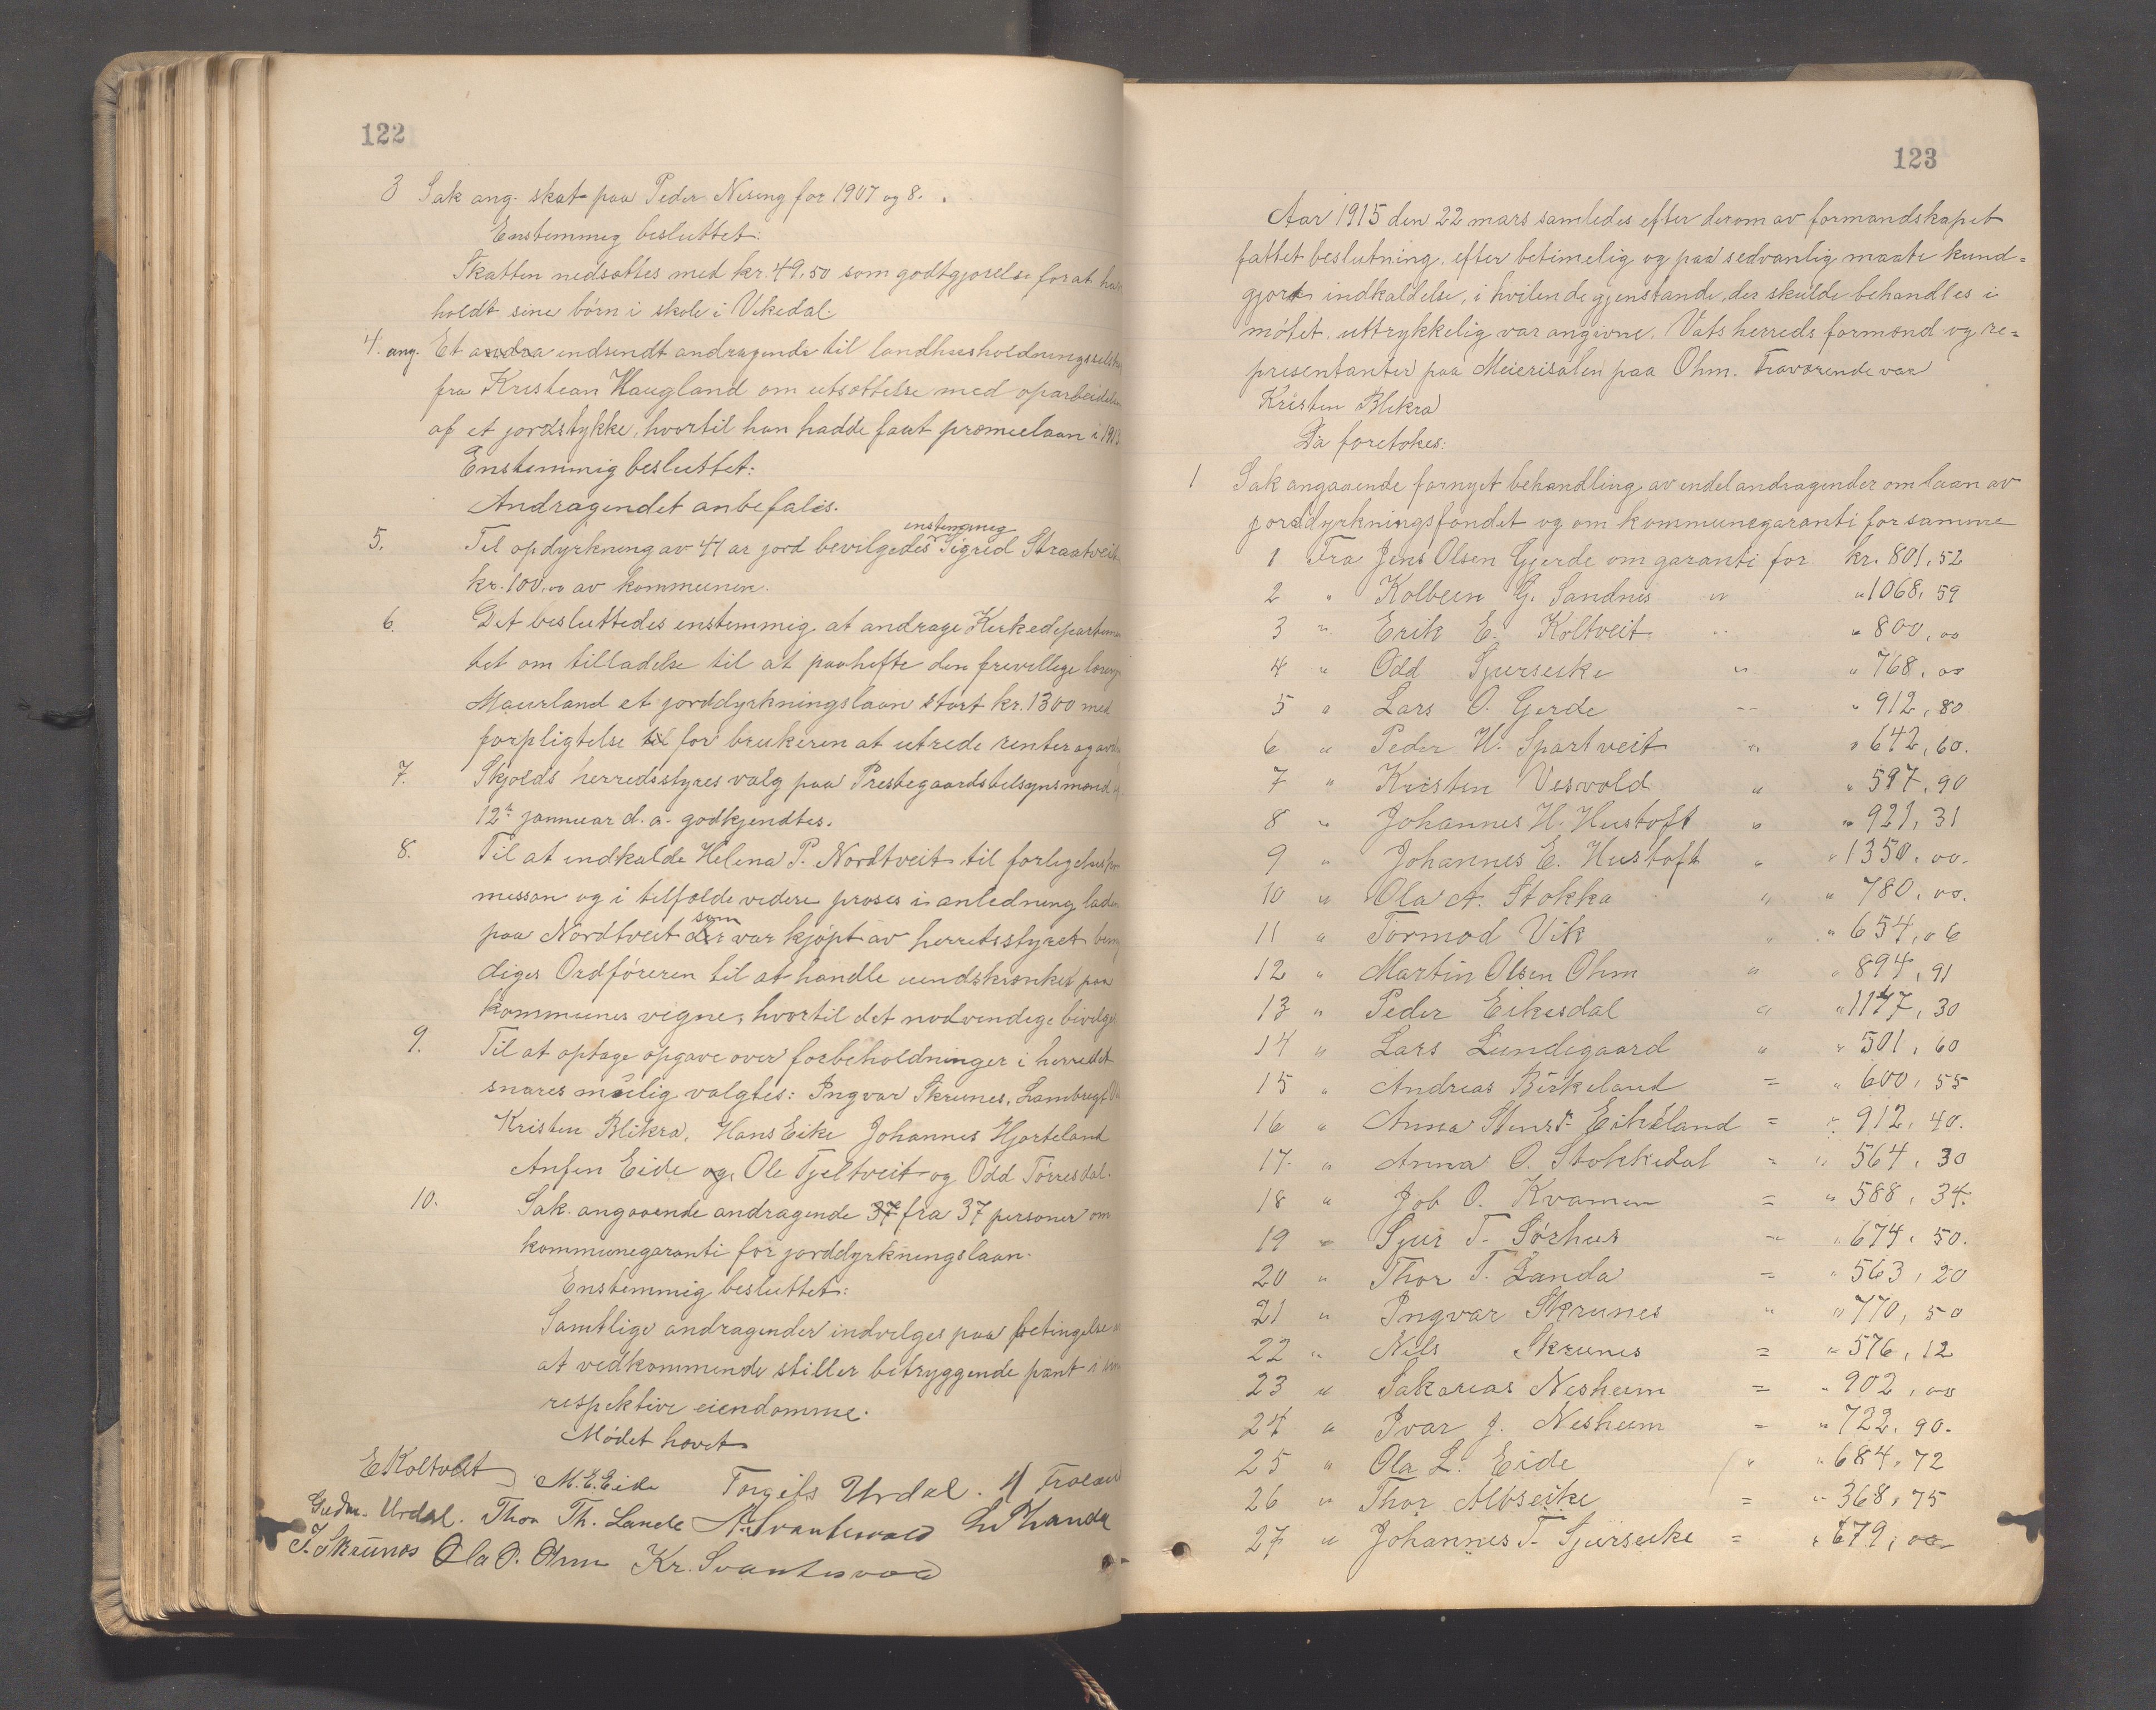 122
3 Sak ang. skat paa Peder Nesing for 1907 og 8.
Enstemmig besluttet:
Skatten nedsættes med kr. 49,50 som godtgjørelse for at ha
holdt sine børn i skole i Vikedal.
4. ang. Et andra indsendt andragende til landhusholdningsselska
fra Kristian Haugland om utsættelse med oparbeidelsen
af et jordstykke, hvortil han hadde faat præmielaan i 1913
Enstemmig besluttet:
Andragendet anbefales.
enstemmig
5. Til opdyrkning av 44 ar jord bevilgedes Sigrid Straatveit
kr. 100,00 av kommunen.
6. Det besluttedes enstemmig at andrage Kirkedepartemen
tet om tilladelse til at paahefte den frivillige
Maurland et jorddyrkningslaan stort kr. 1300 med
forpligtelse til for brukeren at utrede renter og avdr
7. Skjolds herredsstyres valg paa Prestegaardstilsynsmænd
12te jannuar d. a. godkjendtes.
8. Til at indkalde Helena P. Nordtveit til forligelseskom
mission og i tilfælde videre proses i anledning lade
som
paa Nordtveit der var kjøpt av herretsstyret bemyn
diges Ordføreren til at handle uindskrænket paa
kommunes vegne, hvortil det nødvendige bivilges
9. Til at optage opgave over forbeholdninger i herredet
snares mulig valgtes: Ingvar Skrunes, Lambregt
Kristen Blikra, Hans Eike Johannes Hjorteland
Anfin Eide og Ole Tjeltveit og Odd Tørresdal.
10. Sak angaaende andragende 37 fra 37 personer om
kommunegaranti for jorddyrkningslaan.
Enstemmig besluttet:
Samtlige andragender indvilges paa betingelse a
at vedkommende stiller betryggende pant i sine
respektive eiendomme.
Mødet hævet
E Koltveit M. E. Eide Torgils Urdal.
Gudm. Urdal. Thor Th. Lande A. Svantesvold L. T. Landa
I. Skrunes Ola O. Ohm Kr. Svantesvold
123
Aar 1915 den 22 mars samledes efter derom av formandskapet
fattet beslutning, efter betimelig og paa sedvanlig maate kund=
gjort indkaldelse, i hvilen de gjenstande, der skulde behandles i
møtet, uttrykkelig var angivne. Vats herreds formænd og re=
presentanter paa Meierisalen paa Ohm. Fraværende var
Kristen Blikra
Da foretokes:
1 Sak angaaende fornyet behandling av endel andragender om laan av
jorddyrkningsfondet og om kommunegaranti for samme
1 Fra Jens Olsen Gjerde om garanti for kr. 801,52
2 " Kolbein G. Sandnes " " 1068,59
3 " Erik E. Koltveit " " 800,00
4 " Odd Sjurseike " " 768,00
5 " Lars O. Gjerde " " 912,80
6 " Peder H. Spartveit " " 642,60.
7 " Kristen Vesvold " " 597,90
8 " Johannes H. Hustoft " " 921,31
9 " Johannes E. Hustoft " " 1350,00.
10 " Ola A. Stokka " " 780,00.
11 " Tormod Vik " " 654,06
12 " Martin Olsen Ohm " " 894,91
13 " Peder Eikesdal " " 1147,30
14 " Lars Lundegaard " " 501,60
15 " Andreas Birkeland = " 600,55
16 " Anna Stensd. Eikeland = " 912,40.
17. " Anna O. Stokkedal = " 564,30
18 " Job O. Kvamen = " 588,34.
19 " Sjur T. Sørhus = " 674,50.
20 " Thor T. Landa = " 563,20
21 " Ingvar Skrunes " " 770,50
22 " Nils Skrunes = " 576,12
23 " Sakarias Nesheim = " 902,00
24 " Ivar J. Nesheim = " 722,90.
25 " Ola L. Eide " " 684,72
26 " Thor Alvseike = " 368,75
27 " Johannes T. Sjurseike = " 679,00